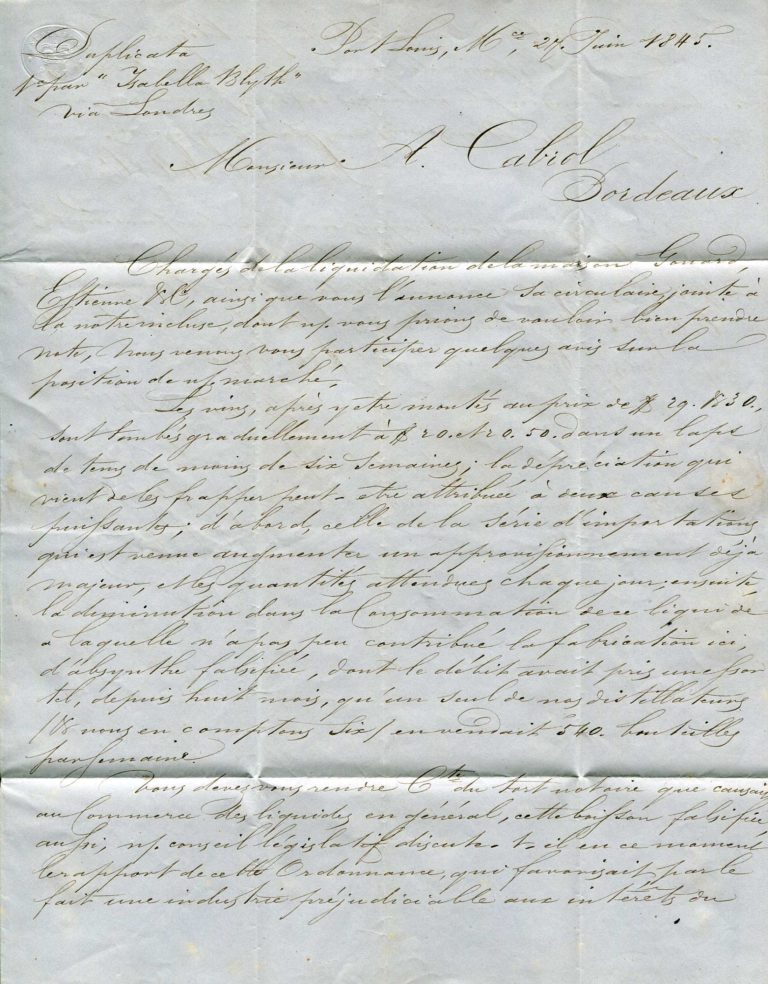 Duplicata
Port Louis, Mce, 27. Juin 1845.
par "Isabella Blyth"
via Londres
Monsieur A. Cabrol
Bordeaux
Chargés de la liquidation de la maison Gonard,
Estienne & Ce, ainsi que vous l'annonce sa circulaire, jointe à
la notre incluse, dont np. vous prions de vouloir bien prendre
note, Nous venons vous participer quelques avis sur la
position de np. marché.
Les vins, après y etre montés au prix de $ 29. & 30.,
sont tombés graduellement à $ 20. et 20. 50. dans un laps
de tems de moins de six semaines; la dépréciation qui
vient de les frapper peut-etre attribuée à deux causes
puissantes; d'abord, celle de la série d'importations
qui est venue augmenter un approvisionnement déjà
majeur, & les quantités attendues chaque jour; ensuite,
la diminution dans la Consommation de ce liquide
a laquelle n'a pas peu contribué la fabrication ici,
d'absynthe falsifiée, dont le débit avait pris un essor
tel, depuis huit mois, qu'un seul de nos distillateurs
(& nous en comptons six) en vendait 540. bouteilles
par semaine.
Vous devez vous rendre Cte du tort notoire que causait
au Commerce des liquides en général, cette boisson falsifiée
aussi np. conseil législatif discute-t-il en ce moment
le rapport de cette Ordonnance, qui favorisait par le
fait une industrie préjudiciable aux intérêts du